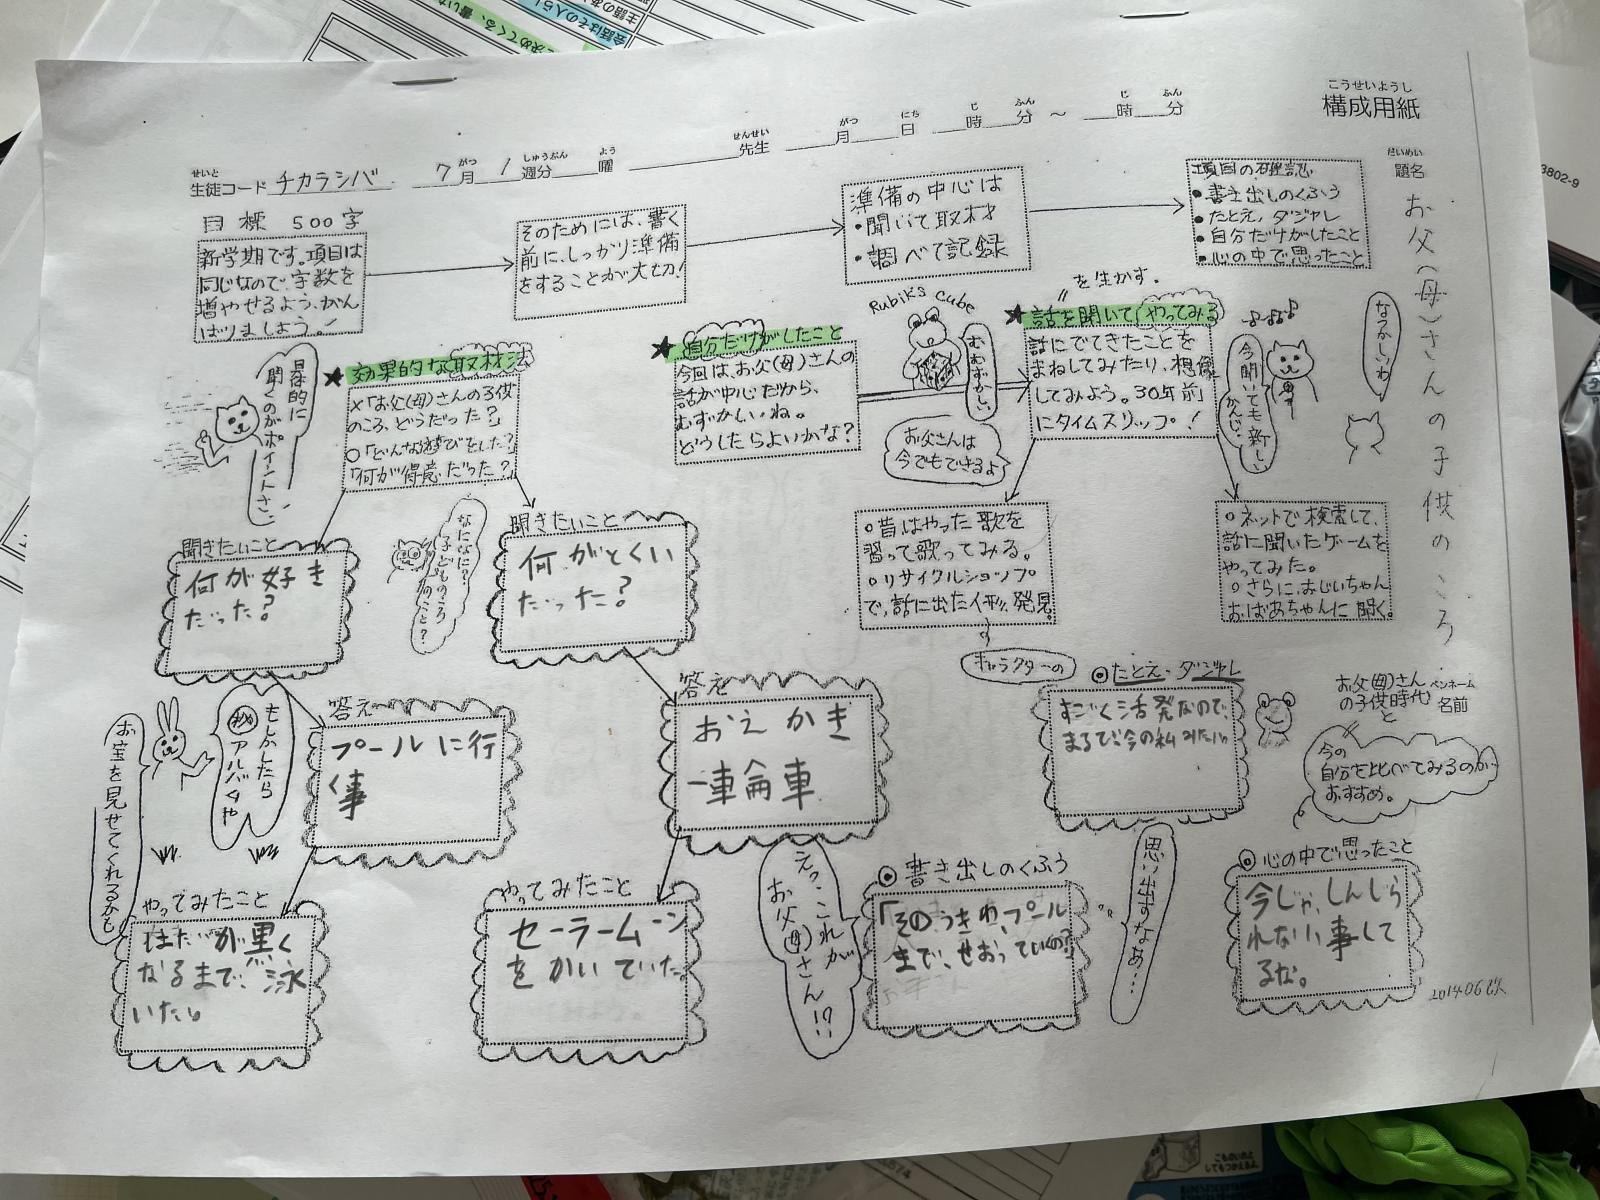 こうせいようし
構成用紙
せいと
生徒コード チカラシバ 7月 1週分 曜 先生 月 日 時 分 ～ 時 分
がつ しゅうぶん よう せんせい がつ にち じ ふん じ ふん
だいめい
題名
お父(母)さんの子供のころ
目標 500字
新学期です。項目は
同じなので、字数を
増やせるよう、がん
ばりましょう。
そのためには、書く
前に、しっかり準備
をすることが大切!
準備の中心は
・聞いて取材
・調べて記録
項目の確認
・書き出しのくふう
・たとえ、ダジャレ
・自分だけがしたこと
・心の中で思ったこと
★効果的な取材法
×「お父(母)さんの子供
のころ、どうだった?」
○「どんな遊びをした?」
「何が得意だった?」
具体的に
聞くのがポイントさ。
★自分だけがしたこと
今回は、お父(母)さんの
話が中心だから、
むずかしいね。
どうしたらよいかな?
Rubik's Cube
むむずかしい
お父さんは
今でもできるよ
を生かす。
★話を聞いてやってみる
話にでてきたことを
まねしてみたり、想像
してみよう。30年前
にタイムスリップ!
今聞いても新しい
かんじ…
なつかしいわ
聞きたいこと
何が好き
だった?
なになに?
子どものころ
のこと?
聞きたいこと
何がとくい
だった?
○昔はやった歌を
習って歌ってみる。
○リサイクルショップ
で、話に出た人形、発見
キャラクターの
○ネットで検索して、
話に聞いたゲームを
やってみた。
○さらに、おじいちゃん
おばあちゃんに聞く。
もしかしたら
㊙アルバムや
お宝を見せてくれるかも
答え
プールに行
く事
答え
おえかき
一輪車
◎たとえ・ダジャレ
すごく活発なので、
まるで今の私みたい
お父(母)さん
の子供時代
と
今の
自分を比べてみるのが
おすすめ。
ペンネーム
名前
やってみたこと
はだが黒く
なるまで、泳
いだ。
やってみたこと
セーラームーン
をかいていた。
えっ、これが
お父(母)さん!?
◎書き出しのくふう
「そのうきわ、プール
まで、せおっていくの?
思い出すなあ…
◎心の中で思ったこと
今じゃ、しんじら
れない事して
るな。
2014.06